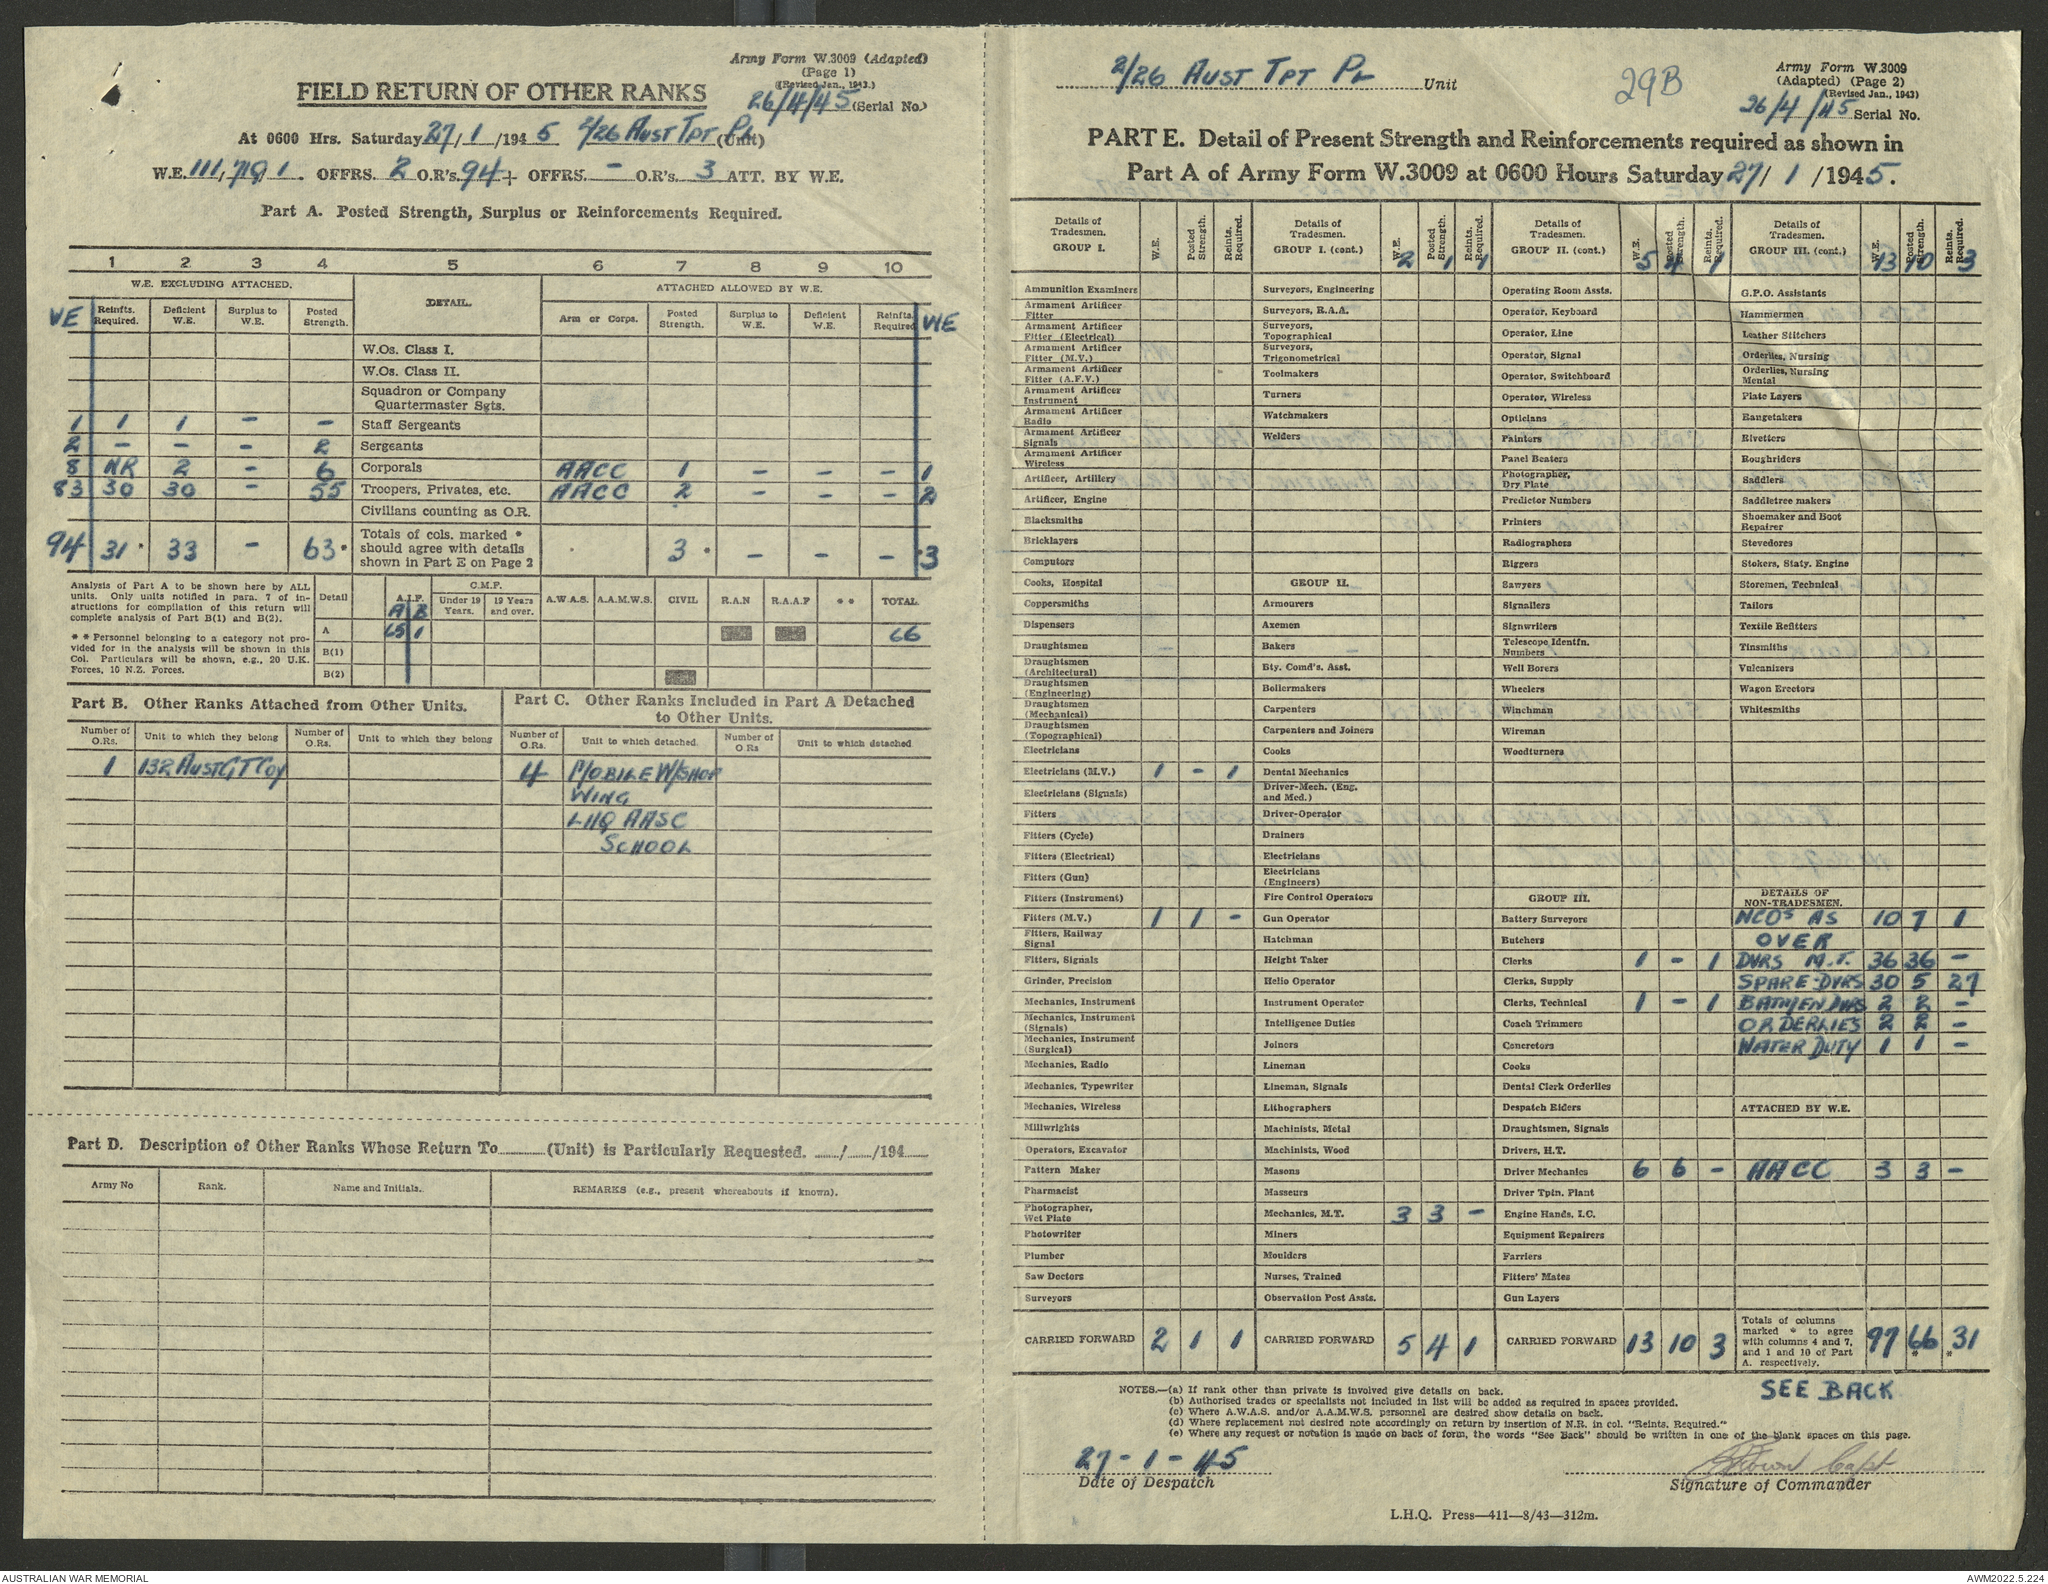 Army Form W.3009 (Adapted)
(Page 1)
(Revised Jan., 1943.)
FIELD RETURN OF OTHER RANKS
26/4/45 (Serial No.)
At 0600 Hrs. Saturday 27/1/1945 2/26 AUST TPT PL (Unit)
W.E. 111,719,1. OFFRS. 2 O.R's. 94 + OFFRS. - O.R's. 3 ATT. BY W.E.
Part A. Posted Strength, Surplus or Reinforcements Required.
1 2 3 4 5 6 7 8 9 10
W.E. EXCLUDING ATTACHED. DETAIL. ATTACHED ALLOWED BY W.E.
WE Reinfts. Required. Deficient W.E. Surplus to W.E. Posted Strength. Arm or Corps. Posted Strength. Surplus to W.E. Deficient W.E. Reinfts. Required WE
W.Os. Class I.
W.Os. Class II.
Squadron or Company Quartermaster Sgts.
1 1 1 - - Staff Sergeants
2 - - - 2 Sergeants
8 NR 2 - 6 Corporals AACC 1 - - - 1
83 30 30 - 55 Troopers, Privates, etc. AACC 2 - - - 2
Civilians counting as O.R.
94 31* 33 - 63* Totals of cols. marked * should agree with details shown in Part E on Page 2 3* - - - *3
Analysis of Part A to be shown here by ALL
units. Only units notified in para. 7 of in-
structions for compilation of this return will
complete analysis of Part B(1) and B(2).
* * Personnel belonging to a category not pro-
vided for in the analysis will be shown in this
Col. Particulars will be shown, e.g., 20 U.K.
Forces, 10 N.Z. Forces.
Detail A.I.F. C.M.F. Under 19 Years. 19 Years and over. A.W.A.S. A.A.M.W.S. CIVIL R.A.N R.A.A.F * * TOTAL
A B
A 65 1 66
B(1)
B(2)
Part B. Other Ranks Attached from Other Units.
Number of O.Rs. Unit to which they belong Number of O.Rs. Unit to which they belong
1 132 AUST GT COY
Part C. Other Ranks Included in Part A Detached
to Other Units.
Number of O.Rs. Unit to which detached. Number of O Rs Unit to which detached
4 MOBILE W/SHOP
WING
LHQ AASC
SCHOOL
Part D. Description of Other Ranks Whose Return To (Unit) is Particularly Requested. / /194
Army No Rank. Name and Initials. REMARKS (e.g., present whereabouts if known).
2/26 AUST TPT PL Unit
29B
Army Form W.3009
(Adapted) (Page 2)
(Revised Jan., 1943)
26/4/45 Serial No.
PART E. Detail of Present Strength and Reinforcements required as shown in
Part A of Army Form W.3009 at 0600 Hours Saturday 27/1/1945.
Details of Tradesmen. GROUP I. W.E. Posted Strength. Reints. Required.
Ammunition Examiners
Armament Artificer Fitter
Armament Artificer Fitter (Electrical)
Armament Artificer Fitter (M.V.)
Armament Artificer Fitter (A.F.V.)
Armament Artificer Instrument
Armament Artificer Radio
Armament Artificer Signals
Armament Artificer Wireless
Artificer, Artillery
Artificer, Engine
Blacksmiths
Bricklayers
Computors
Cooks, Hospital
Coppersmiths
Dispensers
Draughtsmen
Draughtsmen (Architectural)
Draughtsmen (Engineering)
Draughtsmen (Mechanical)
Draughtsmen (Topographical)
Electricians
Electricians (M.V.) 1 - 1
Electricians (Signals)
Fitters
Fitters (Cycle)
Fitters (Electrical)
Fitters (Gun)
Fitters (Instrument)
Fitters (M.V.) 1 1 -
Fitters, Railway Signal
Fitters, Signals
Grinder, Precision
Mechanics, Instrument
Mechanics, Instrument (Signals)
Mechanics, Instrument (Surgical)
Mechanics, Radio
Mechanics, Typewriter
Mechanics, Wireless
Millwrights
Operators, Excavator
Pattern Maker
Pharmacist
Photographer, Wet Plate
Photowriter
Plumber
Saw Doctors
Surveyors
CARRIED FORWARD 2 1 1
Details of Tradesmen. GROUP I. (cont.) W.E. 2 Posted Strength. 1 Reints. Required. 1
Surveyors, Engineering
Surveyors, R.A.A.
Surveyors, Topographical
Surveyors, Trigonometrical
Toolmakers
Turners
Watchmakers
Welders
GROUP II.
Armourers
Axemen
Bakers
Bty. Comd's. Asst.
Boilermakers
Carpenters
Carpenters and Joiners
Cooks
Dental Mechanics
Driver-Mech. (Eng. and Med.)
Driver-Operator
Drainers
Electricians
Electricians (Engineers)
Fire Control Operators
Gun Operator
Hatchman
Height Taker
Helio Operator
Instrument Operator
Intelligence Duties
Joiners
Lineman
Lineman, Signals
Lithographers
Machinists, Metal
Machinists, Wood
Masons
Masseurs
Mechanics, M.T. 3 3 -
Miners
Moulders
Nurses, Trained
Observation Post Assts.
CARRIED FORWARD 5 4 1
Details of Tradesmen. GROUP II. (cont.) W.E. 5 Posted Strength. 4 Reints. Required. 1
Operating Room Assts.
Operator, Keyboard
Operator, Line
Operator, Signal
Operator, Switchboard
Operator, Wireless
Opticians
Painters
Panel Beaters
Photographer, Dry Plate
Predictor Numbers
Printers
Radiographers
Riggers
Sawyers
Signallers
Signwriters
Telescope Identfn. Numbers
Well Borers
Wheelers
Winchman
Wireman
Woodturners
GROUP III.
Battery Surveyors
Butchers
Clerks 1 - 1
Clerks, Supply
Clerks, Technical 1 - 1
Coach Trimmers
Concretors
Cooks
Dental Clerk Orderlies
Despatch Riders
Draughtsmen, Signals
Drivers, H.T.
Driver Mechanics 6 6 -
Driver Tptn. Plant
Engine Hands, I.C.
Equipment Repairers
Farriers
Fitters' Mates
Gun Layers
CARRIED FORWARD 13 10 3
Details of Tradesmen. GROUP III. (cont.) W.E. 13 Posted Strength. 10 Reints. Required. 3
G.P.O. Assistants
Hammermen
Leather Stitchers
Orderlies, Nursing
Orderlies, Nursing Mental
Plate Layers
Rangetakers
Rivetters
Roughriders
Saddlers
Saddletree makers
Shoemaker and Boot Repairer
Stevedores
Stokers, Staty. Engine
Storemen, Technical
Tailors
Textile Refitters
Tinsmiths
Vulcanizers
Wagon Erectors
Whitesmiths
DETAILS OF NON-TRADESMEN.
NCOs AS 10 7 1
OVER
DVRS M.T. 36 36 -
SPARE DVRS 30 5 27
BATMEN DVRS 2 2 -
ORDERLIES 2 2 -
WATER DUTY 1 1 -
ATTACHED BY W.E.
AACC 3 3 -
Totals of columns marked * to agree with columns 4 and 7, and 1 and 10 of Part A. respectively. 97 66* *31
SEE BACK
NOTES.—(a) If rank other than private is involved give details on back.
(b) Authorised trades or specialists not included in list will be added as required in spaces provided.
(c) Where A.W.A.S. and/or A.A.M.W.S. personnel are desired show details on back.
(d) Where replacement not desired note accordingly on return by insertion of N.R. in col. "Reints. Required."
(e) Where any request or notation is made on back of form, the words "See Back" should be written in one of the blank spaces on this page.
27-1-45
Date of Despatch
Capt
Signature of Commander
L.H.Q. Press—411—8/43—312m.
AUSTRALIAN WAR MEMORIAL
AWM2022.5.224